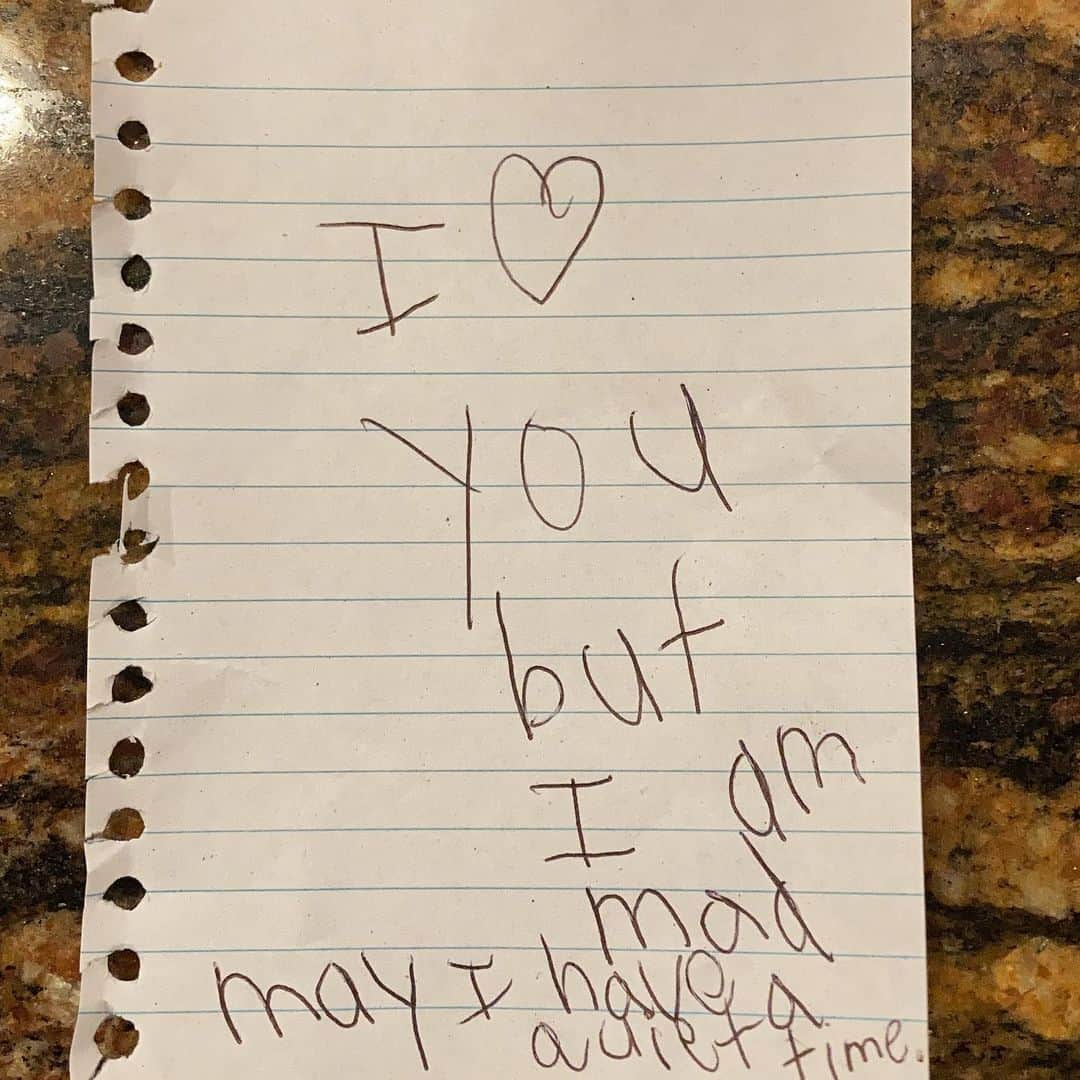 I ♡
you
but
I am
mad
may I have a
quiet time.